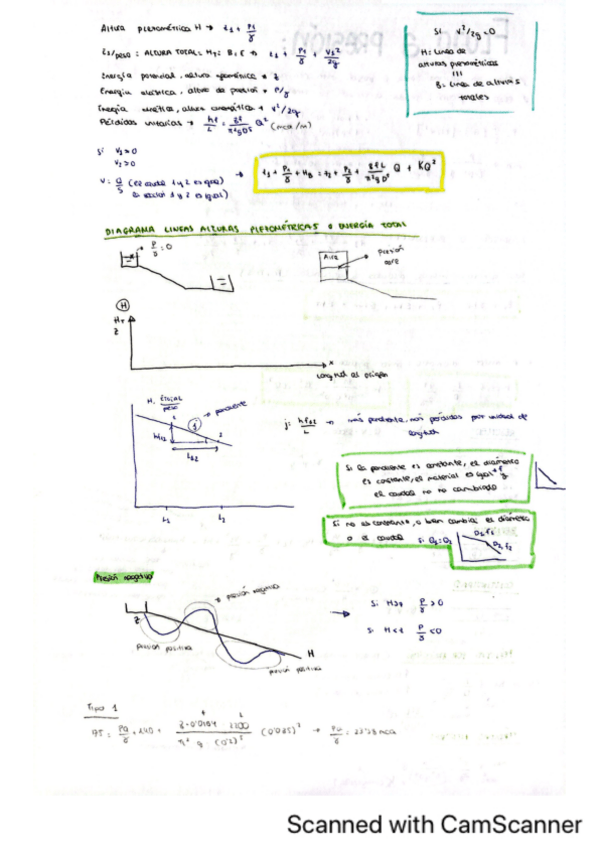 Altura piezométrica H → z₁ + P₁/γ
E₁/peso : ALTURA TOTAL: H_T = B.E → z₁ + P₁/γ + V₁²/2g
Energía potencial, altura geométrica = z
Energía elástica, altura de presión = P/γ
Energía cinética, altura cinemática + v²/2g
Pérdidas unitarias → hf/L = 8f/π²gD⁵ Q² (mca/m)
Si v²/2g ≈ 0
H: Línea de
alturas piezométricas
III
B: Línea de alturas
totales
Si V₁ ≈ 0
V₂ ≈ 0
V = Q/S (el caudal 1 y 2 es igual)
1 y 2 es igual)
→ z₁ + P₁/γ + H_B = z₂ + P₂/γ + Q + KQ²
DIAGRAMA LINEAS ALTURAS PIEZOMÉTRICAS O ENERGÍA TOTAL
P/γ = 0
Aire
presión
aire
H
H_T
Z
x
Longitud al origen
H, E TOTAL/PESO
j → pendiente
hf₁₂
L₁₂
L₁ L₂
j = hf₁₂/L → más pendiente, más pérdidas por unidad de
longitud
Si la pendiente es constante, el diámetro
es constante, el material es igual + f y
el caudal no ha cambiado
Si no es constante, o bien cambia el diámetro
o el caudal Si Q₁ = Q₂
D₁, f₁
D₂, f₂
Presión negativa
presión negativa
Z
H
presión positiva
presión positiva
→ Si H>z P/γ > 0
Si H<z P/γ < 0
Tipo 1
Scanned with CamScanner